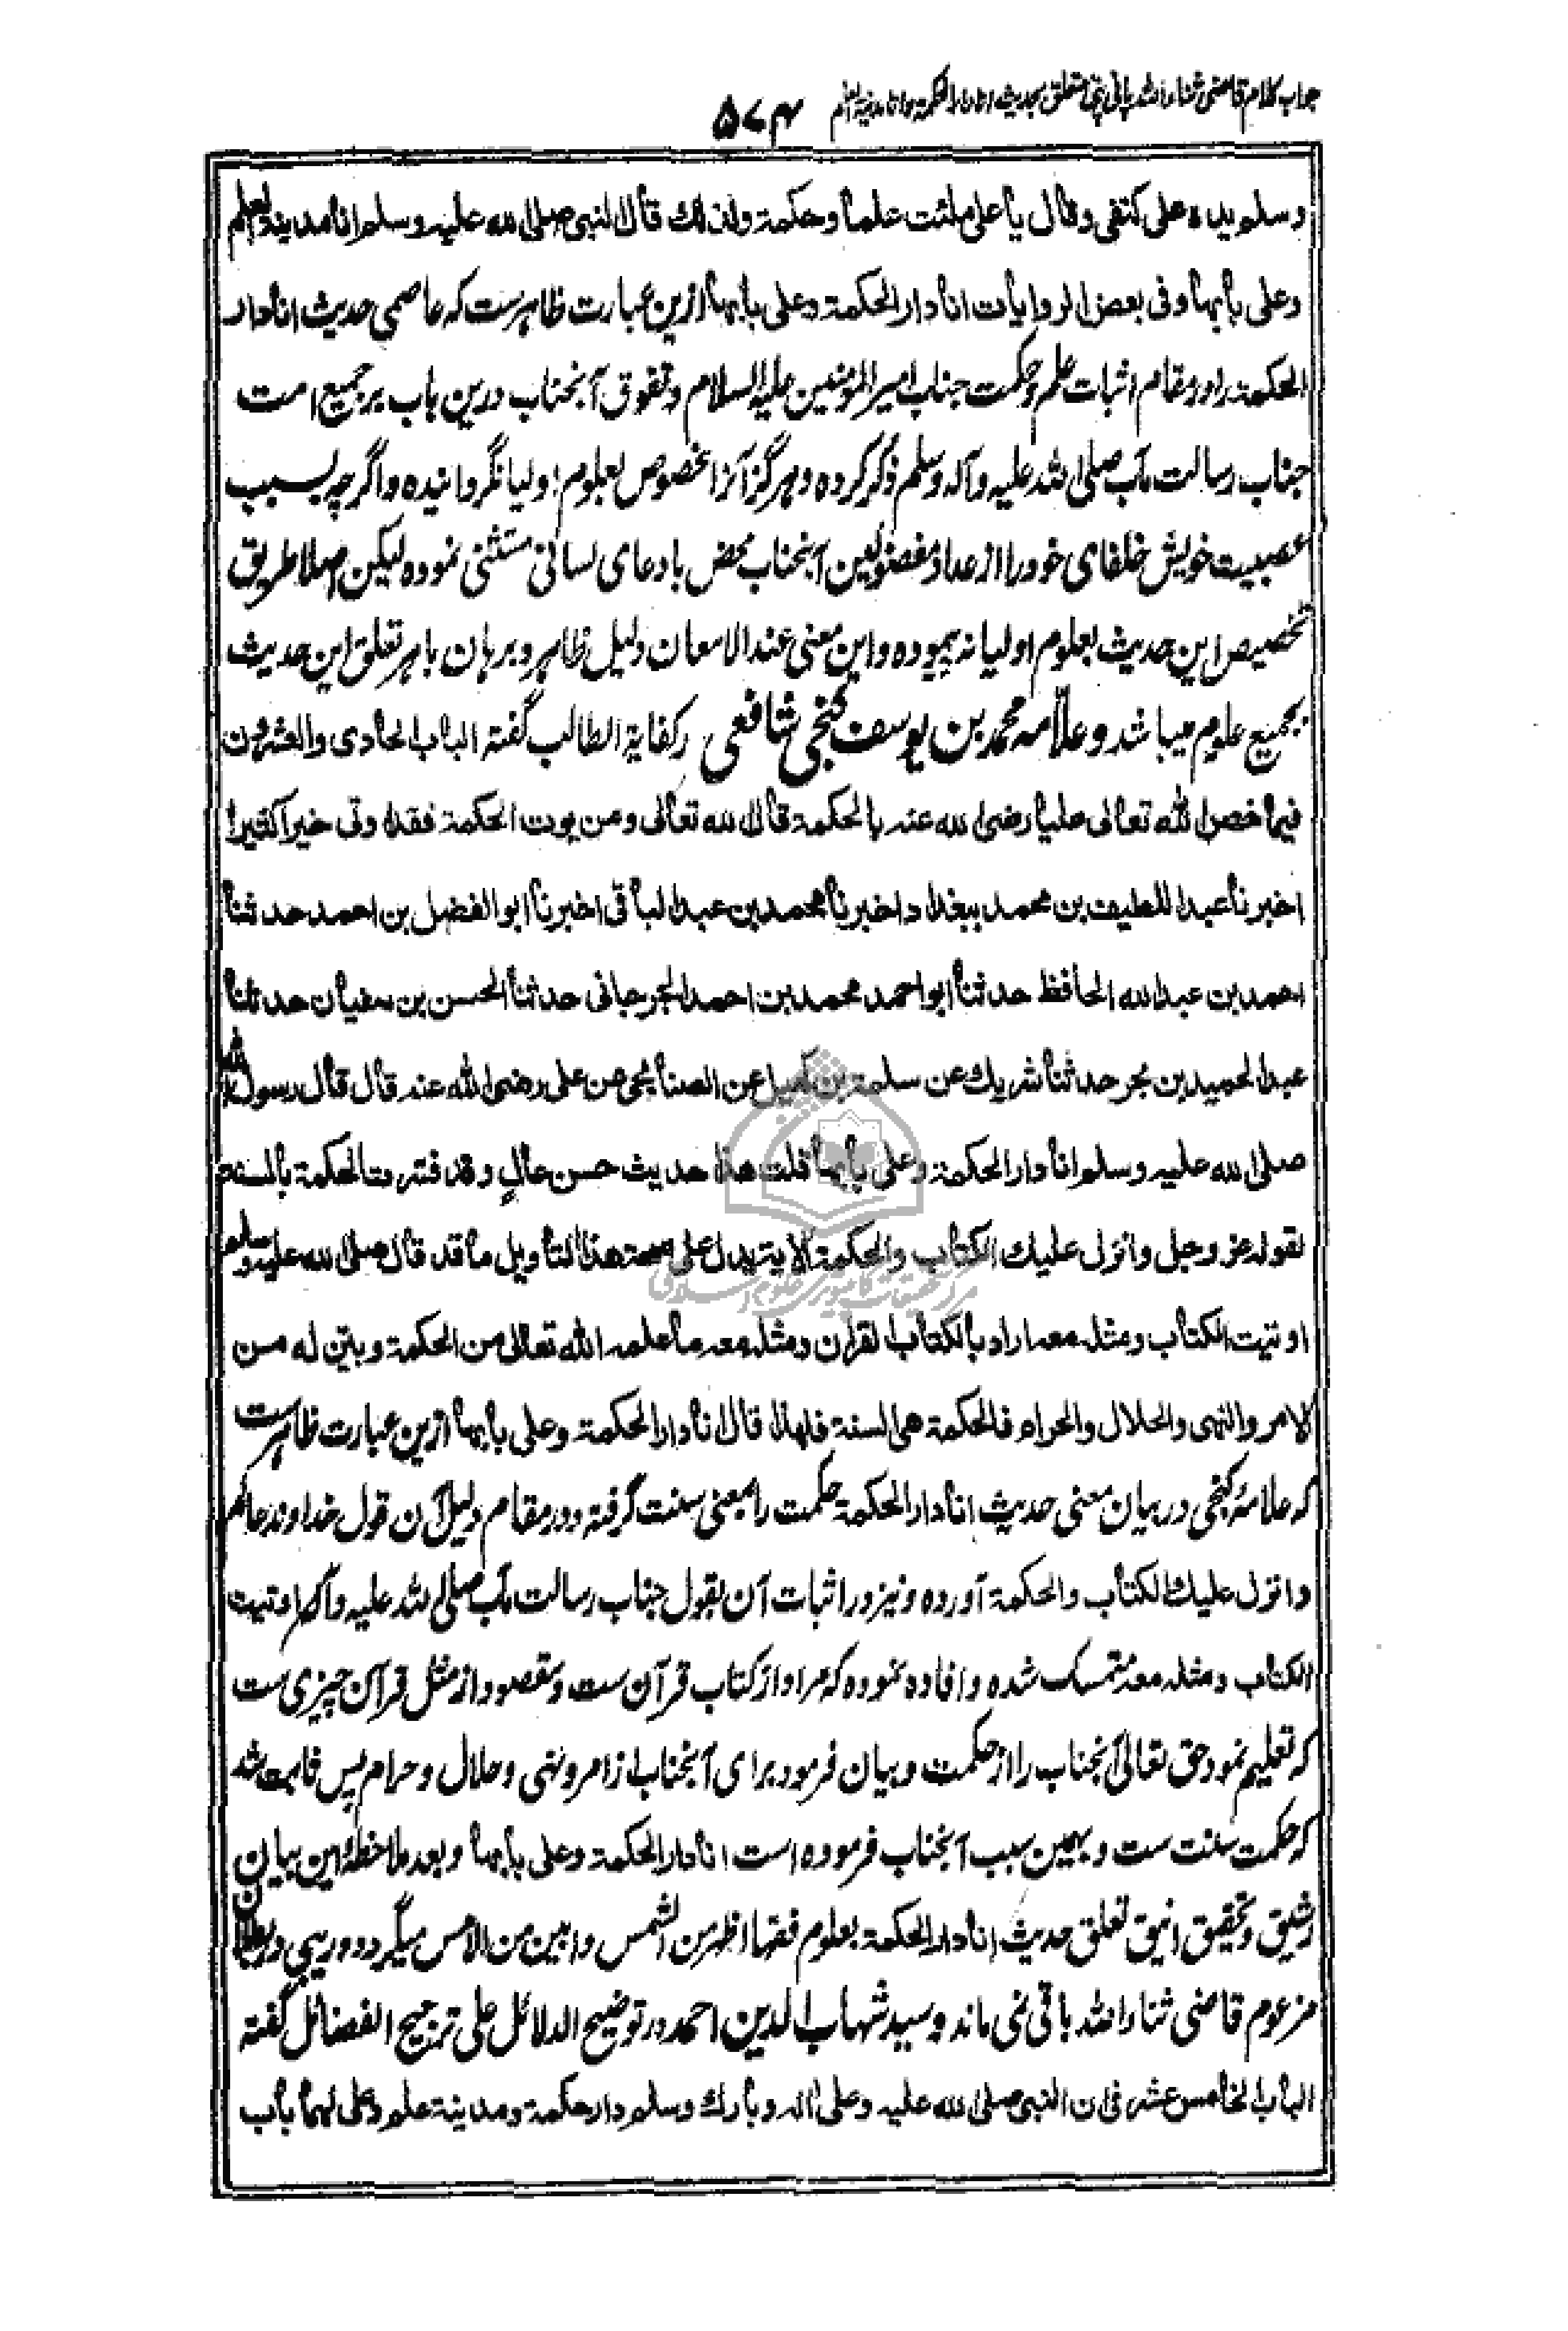 جواب کلام قاضی ثناء الله پانی پتی متعلق بحدیث انا دار الحکمة وانا مدینة العلم
۵۷۴
وسلم يده على كتفى وقال يا على ملئت علما وحكمة ولذلك قال النبى صلى الله عليه وسلم انا مدينة العلم
وعلى بابها وفى بعض الروايات انا دار الحكمة وعلى بابها ازین عبارت ظاهرست که عاصمی حدیث انا دار
الحكمة را در مقام اثبات علم وحکمت جناب امیر المؤمنین علیه السلام وتفوق آنجناب درین باب بر جمیع امت
جناب رسالت مآب صلی الله علیه وآله وسلم ذکر کرده وهرگز آنرا مخصوص بعلوم اولیا نگردانیده واگرچه بسبب
عصبیت خویش خلفای خود را از عداد مفضولین آنجناب محض بادعای لسانی مستثنی نموده لیکن اصلا طریق
تخصیص این حدیث بعلوم اولیا نه پیموده واین معنی عند الامعان دلیل ظاهر وبرهان باهر تعلق این حدیث
بجمیع علوم میباشد وعلّامه محمد بن یوسف کنجی شافعی در کفایة الطالب گفته الباب الحادى والعشرون
فيما خص الله تعالى عليا رضى الله عنه بالحكمة قال الله تعالى ومن يوت الحكمة فقد اوتى خيرا كثيرا
اخبرنا عبد اللطيف بن محمد ببغداد اخبرنا محمد بن عبد الباقى اخبرنا ابو الفضل بن احمد حدثنا
احمد بن عبد الله الحافظ حدثنا ابو احمد محمد بن احمد الجرجانى حدثنا الحسن بن سفيان حدثنا
عبد الحميد بن بحر حدثنا شريك عن سلمة بن كهيل عن الصنابحى عن على رضى الله عنه قال قال رسول الله
صلى الله عليه وسلم انا دار الحكمة وعلى بابها قلت هذا حديث حسن عالٍ وقد فسرت الحكمة بالسنة
لقوله عز وجل وانزل عليك الكتاب والحكمة الاية يدل على صحة هذا التأويل ما قد قال صلى الله عليه وسلم
اوتيت الكتاب ومثله معه اراد بالكتاب القران ومثله معه ما علمه الله تعالى من الحكمة وبيّن له من
الامر والنهى والحلال والحرام فالحكمة هى السنة فلهذا قال انا دار الحكمة وعلى بابها ازین عبارت ظاهرست
که علامهٔ کنجی در بیان معنی حدیث انا دار الحكمة حکمت را بمعنی سنت گرفته ودر مقام دلیل آن قول خداوند عالم
وانزل عليك الكتاب والحكمة آورده ونیز در اثبات آن بقول جناب رسالت مآب صلی الله علیه وآله اوتيت
الكتاب ومثله معه متمسک شده وافاده نموده که مراد از کتاب قرآن ست ومقصود از مثل قرآن چیزی ست
که تعلیم نمود حق تعالی آنجناب را از حکمت وبیان فرمود برای آنجناب از امر ونهی وحلال وحرام پس ثابت شد
که حکمت سنت ست وبهمین سبب آنجناب فرموده است انا دار الحكمة وعلى بابها وبعد ملاحظهٔ این بیان
رشیق وتحقیق انیق تعلق حدیث انا دار الحكمة بعلوم فقها اظهر من الشمس وابین من الامس میگردد وریبی در بطلان
مزعوم قاضی ثناء الله باقی نمی ماند وسید شهاب الدین احمد در توضیح الدلائل علی ترجیح الفضائل گفته
الباب الخامس عشر فى ان النبى صلى الله عليه وعلى اله وبارك وسلم دار حكمة ومدينة علم وعلى لهما باب
مرکز تحقیقات کامپیوتری علوم اسلامی